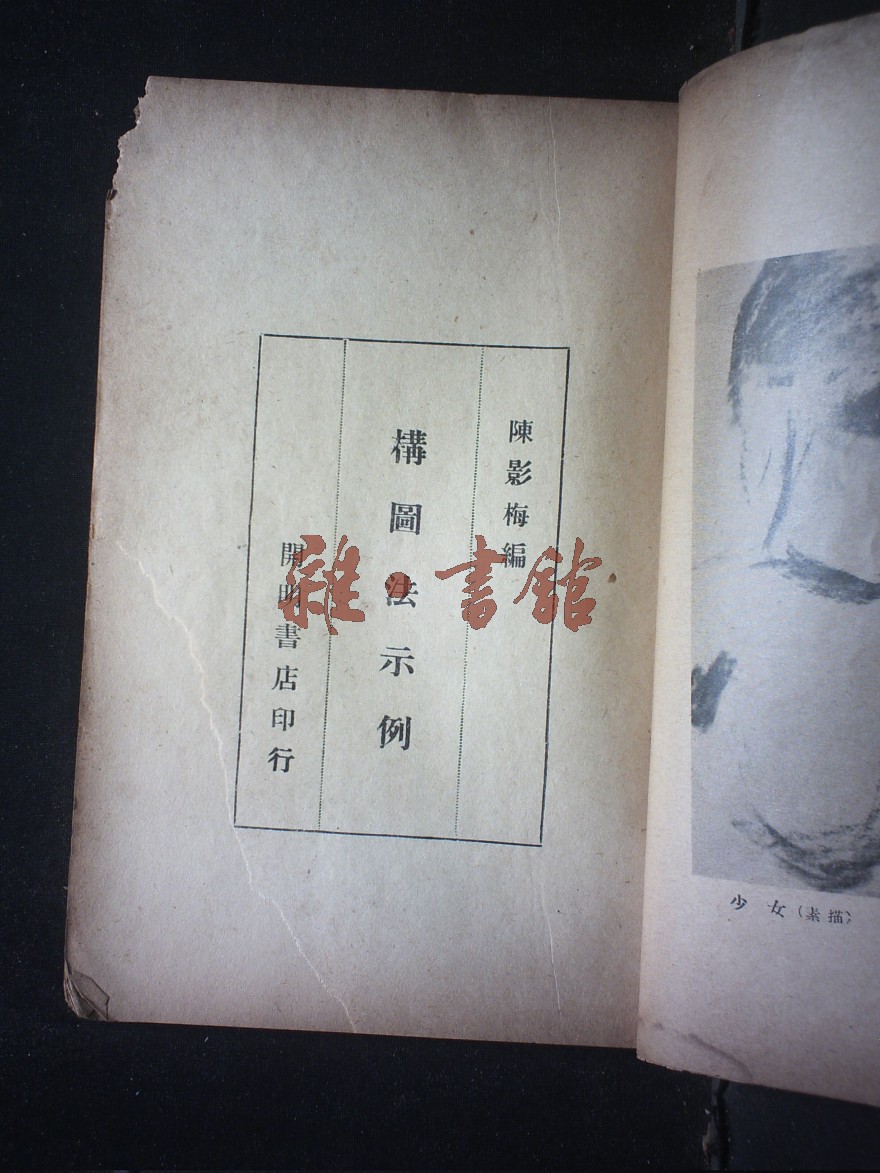 陳影梅編
構圖法示例
開明書店印行
雜·書館
少女(素描)